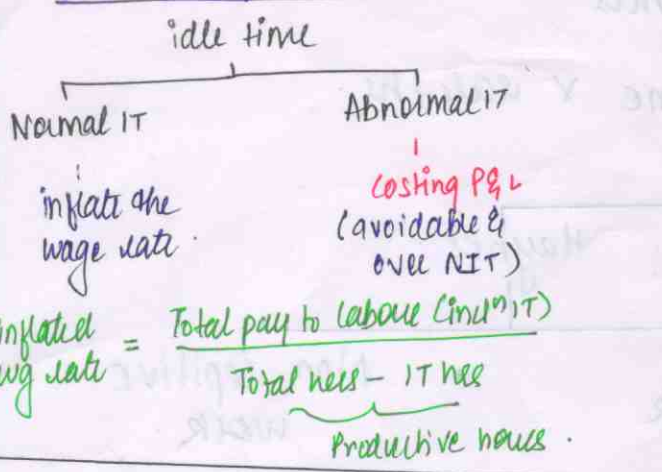 idle time
Normal IT
Abnormal IT
inflate the
wage rate.
Costing P& L
(avoidable &
over NIT)
inflated
wg rate = Total pay to labour (incl n IT)
Total hrs - IT hrs
Productive hours.